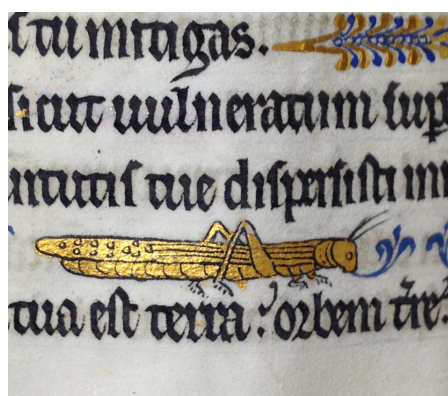 tu mitigas.
sicut uulneratum sup
tue dispersisti
tua est terra : orbem t̄re